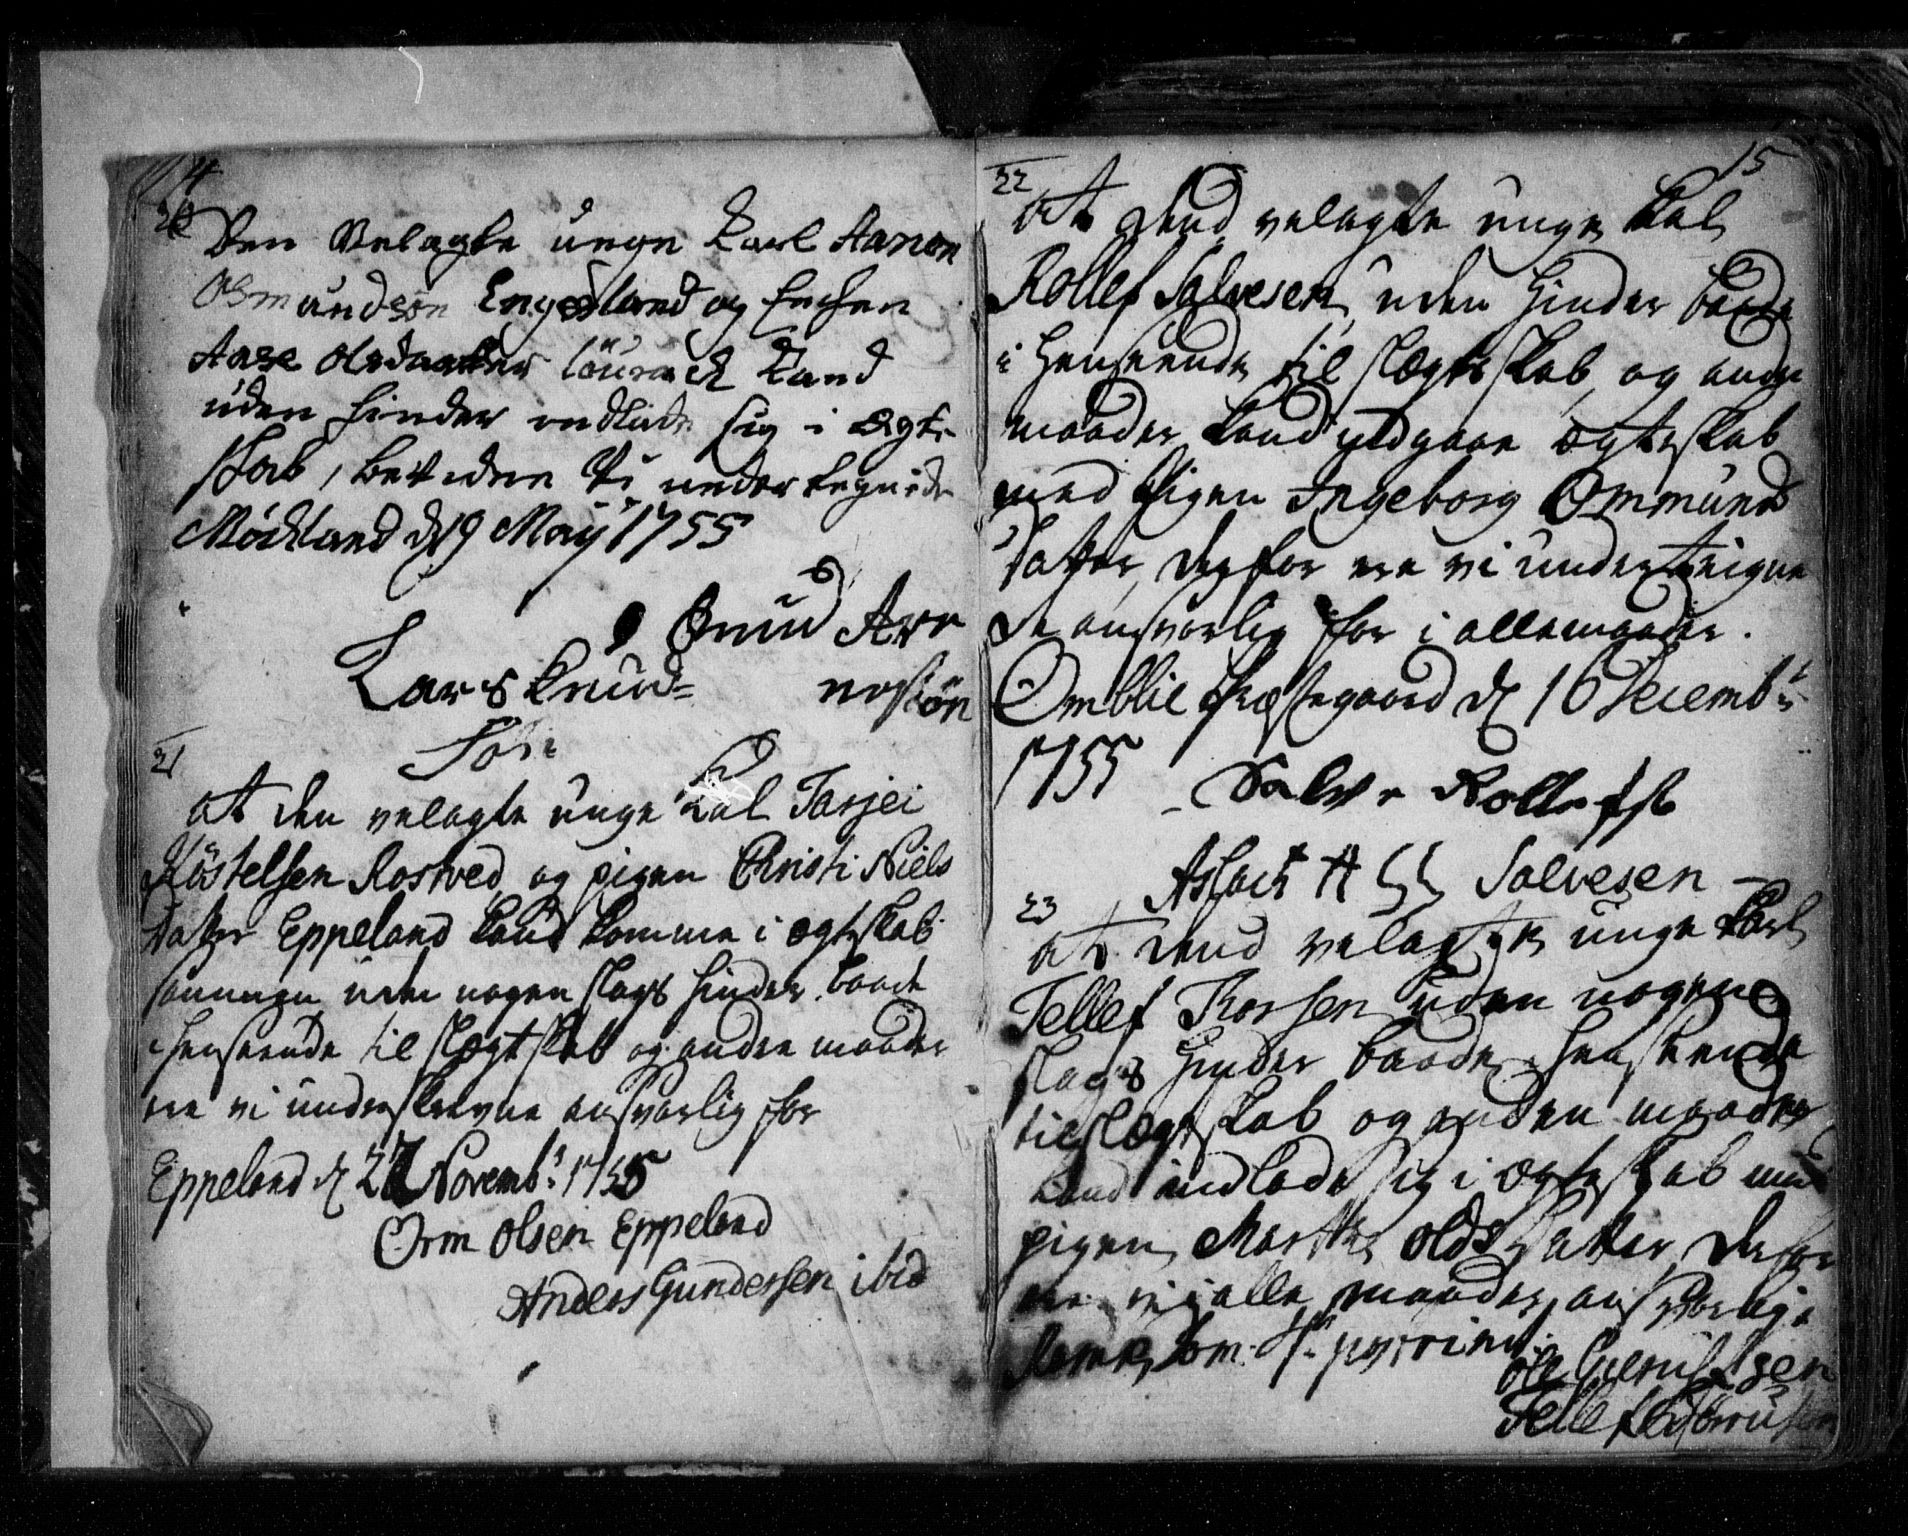 14
20
Den Velagte unge Karl Aanon
Osmundsøn Engesland og Enken
Aase Olsdaatter Kand
uden hinder indlade sig i Ægte
skab, bevidner Vi undertegnede
Möckland d 19 Maÿ 1755
Knud Are
Lars Knud=
nessön
Søn
21
At den velagte unge Kal Tarjei
Köstelsen Rostved og pigen Christi Niels
datter Eppeland kand komme i ægteskab
sammen uden nogen slags hinder baade
i henseende til slægtskab og andre maader
ere vi underskrevne answarlig for
Eppeland d 27 Novembr: 1755
Orm Olsen Eppeland
Anders Gundersen ibid
15
22
At dend velagte unge Kal
Rollef Salvesen uden Hinder baade
i Henseende til slægtskab, og andre
maader kand indgaae ægteskab
med Pigen Ingeborg Ommunds
datter, derfor ere vi underteigne
de answarlig for i alle maader.
Omblie Præstegaard d 16 Decembr
1755
Salve Rollefs
Aslack A S S Salvesen
23
At dend velagte unge Karl
Tellef Torsen uden nogen
slags Hinder baade i henseende
til slægtskab og anden maader
kand indlade sig i Ægteskab med
pigen Marthe Olds datter, derfor
ere vi i alle maader answarlig.
Ole
Tellef